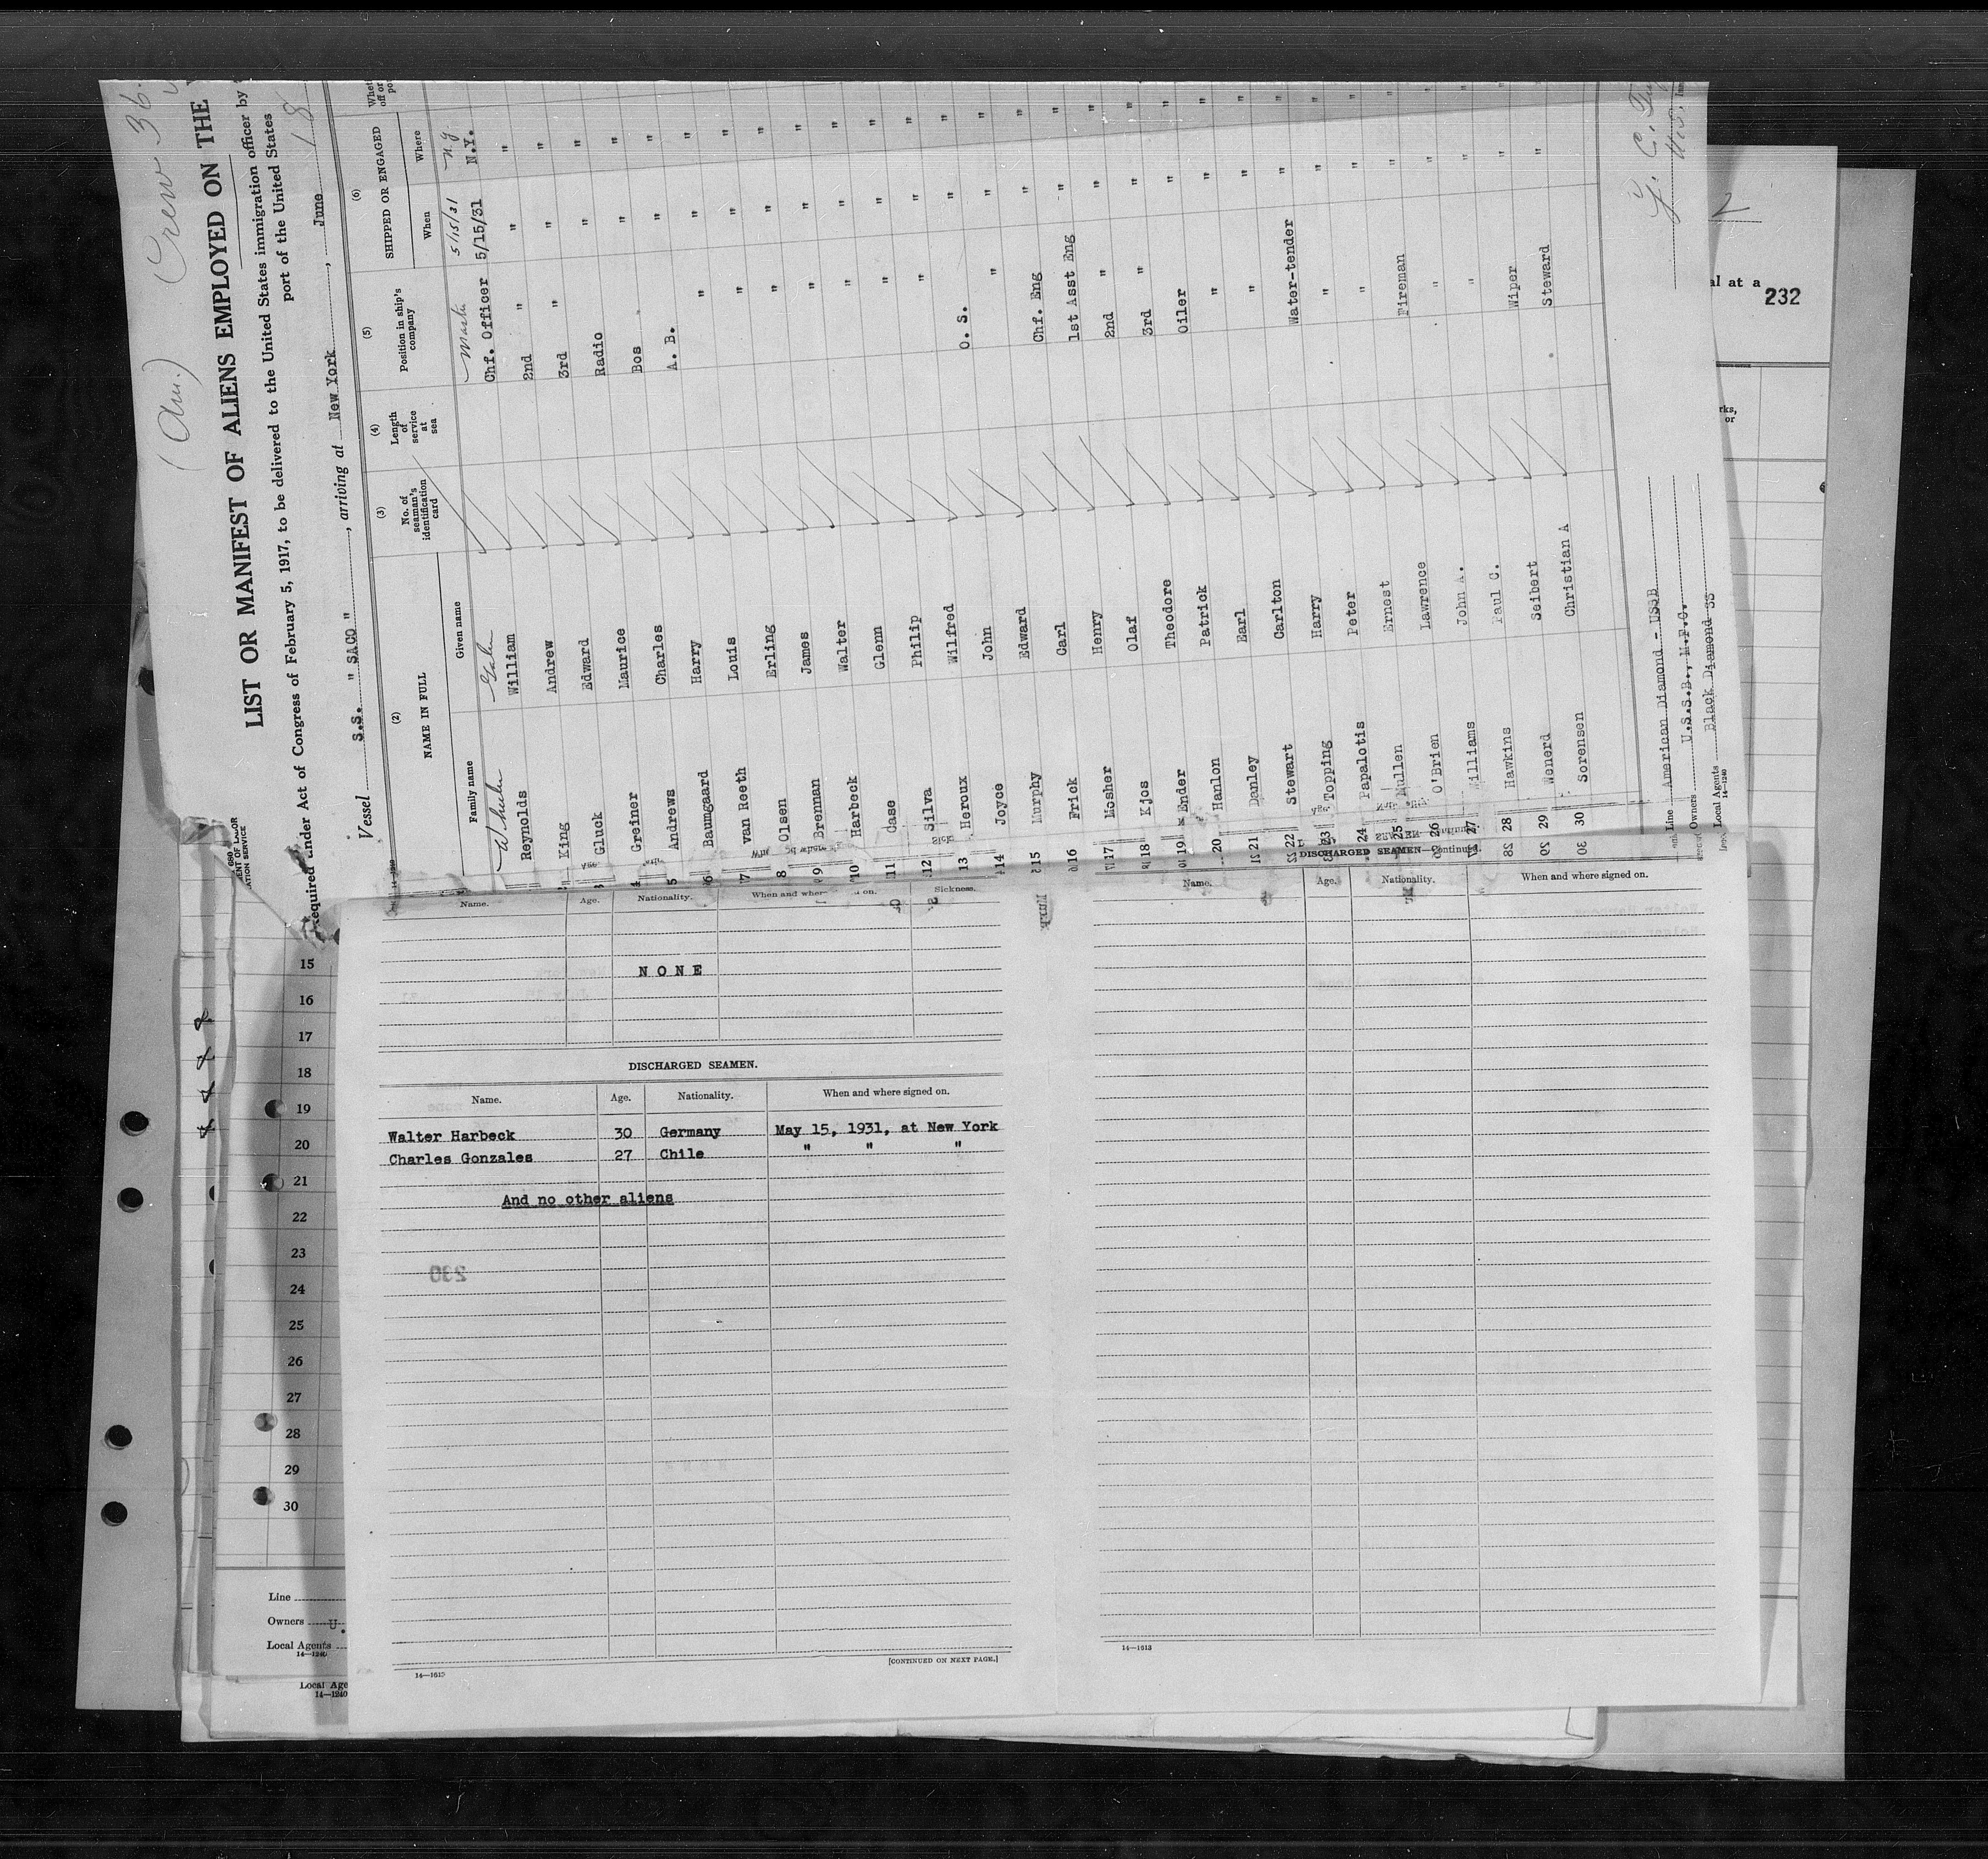 (Am.) Crew 36.
LIST OR MANIFEST OF ALIENS EMPLOYED ON THE
Required under Act of Congress of February 5, 1917, to be delivered to the United States immigration officer by
port of the United States
Vessel S.S. " SACO ", arriving at New York, June 18
(2) (3) (4) (5) (6)
NAME IN FULL No. of seaman's identification card Length of service at sea Position in ship's company SHIPPED OR ENGAGED
Family name Given name When Where
Wheeler John Master 5/15/31 N.Y.
Reynolds William Chf. Officer 5/15/31 N.Y.
King Andrew 2nd " " "
3 Gluck Edward 3rd " " "
4 Greiner Maurice Radio " "
5 Andrews Charles Bos " "
6 Baumgaard Harry A. B. " "
7 van Reeth Louis " " "
8 Olsen Erling " " "
9 Brennan James " " "
10 Harbeck Walter " " "
11 Case Glenn " " "
12 Silva Philip " " "
13 Heroux Wilfred " " "
14 Joyce John O. S. " "
15 Murphy Edward " " "
16 Frick Carl Chf. Eng " "
17 Mosher Henry 1st Asst Eng " "
18 Kjos Olaf 2nd " " "
19 Ender Theodore 3rd " " "
20 Hanlon Patrick Oiler " "
21 Danley Earl " " "
22 Stewart Carlton " " "
23 Topping Harry Water-tender " "
24 Papalotis Peter " " "
25 Mullen Ernest " " "
26 O'Brien Lawrence Fireman " "
27 Williams John A. " " "
28 Hawkins Paul C. " " "
29 Wonerd Seibert Wiper " "
30 Sorensen Christian A Steward " "
Line American Diamond - USSB
Owners U.S.S.B., M.F.C.
Local Agents Black Diamond SS
14—1240
al at a
232
rks,
or
Name. Age. Nationality. When and where on. Sickness.
NONE
DISCHARGED SEAMEN.
Name. Age. Nationality. When and where signed on.
Walter Harbeck 30 Germany May 15, 1931, at New York
Charles Gonzales 27 Chile " " "
And no other aliens
230
14—1613
[CONTINUED ON NEXT PAGE.]
DISCHARGED SEAMEN—Continued.
Name. Age. Nationality. When and where signed on.
14—1613
15
16
17
18
19
20
21
22
23
24
25
26
27
28
29
30
Line
Owners U.
Local Agents
14—1240
Local Age
14—1240